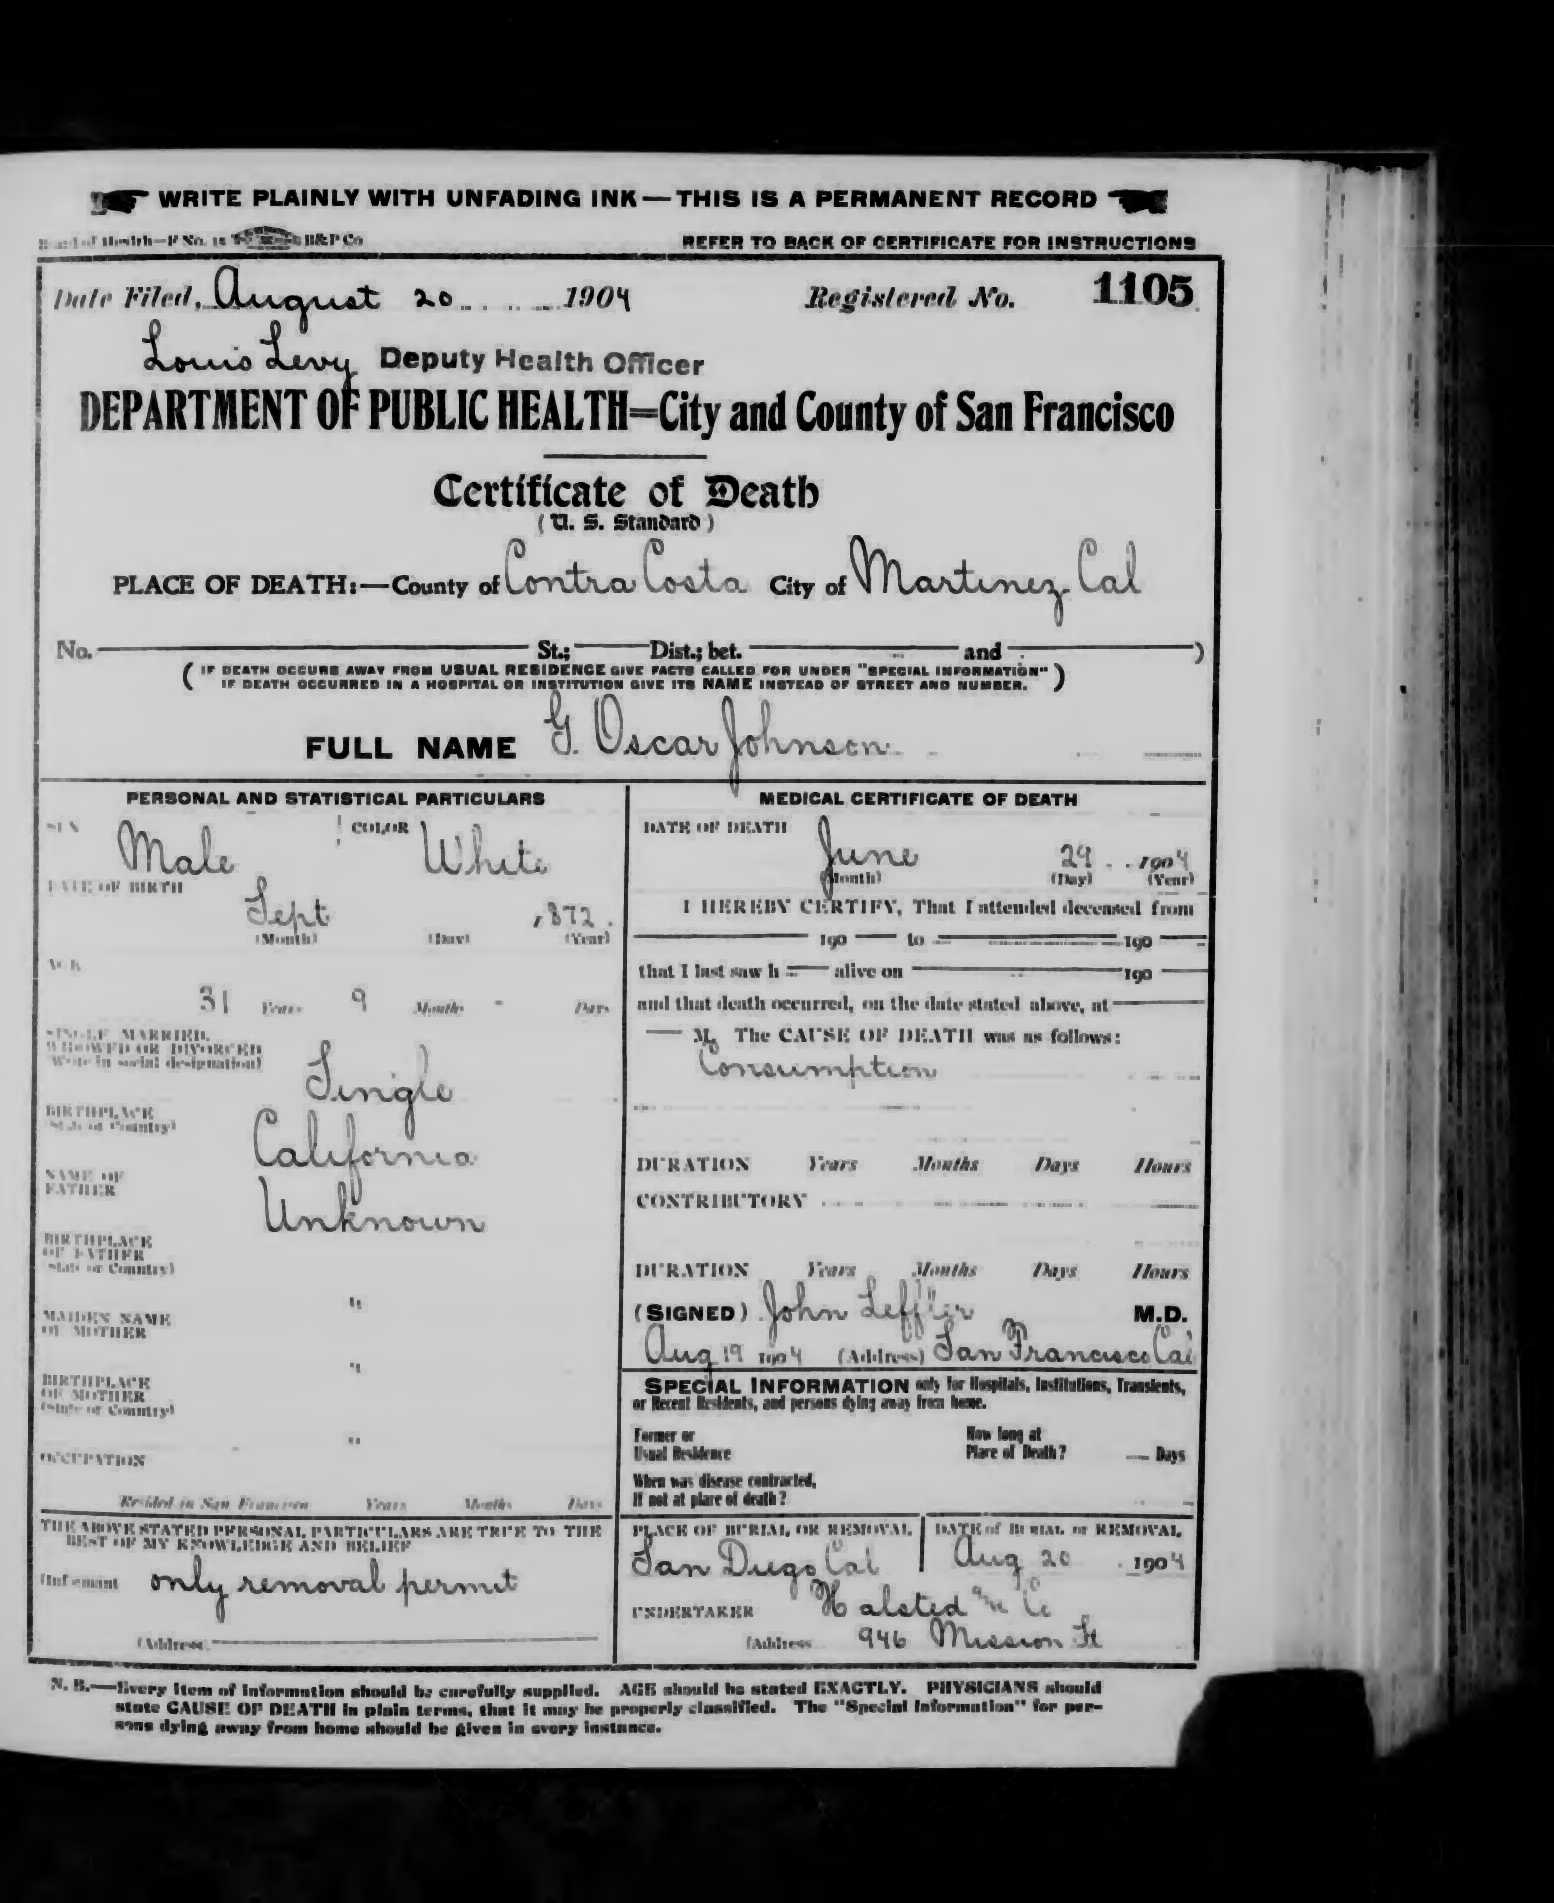 WRITE PLAINLY WITH UNFADING INK — THIS IS A PERMANENT RECORD
Board of Health—F No. 15 B&P Co
REFER TO BACK OF CERTIFICATE FOR INSTRUCTIONS
Date Filed, August 20 1904 Registered No. 1105
Louis Levy Deputy Health Officer
DEPARTMENT OF PUBLIC HEALTH=City and County of San Francisco
Certificate of Death
(U. S. Standard)
PLACE OF DEATH:—County of Contra Costa City of Martinez Cal
No. St.; Dist.; bet. and )
( IF DEATH OCCURS AWAY FROM USUAL RESIDENCE GIVE FACTS CALLED FOR UNDER "SPECIAL INFORMATION" )
( IF DEATH OCCURRED IN A HOSPITAL OR INSTITUTION GIVE ITS NAME INSTEAD OF STREET AND NUMBER. )
FULL NAME G. Oscar Johnson
PERSONAL AND STATISTICAL PARTICULARS
SEX Male COLOR White
DATE OF BIRTH
Sept 1872.
(Month) (Day) (Year)
AGE
31 Years 9 Months - Days
SINGLE MARRIED,
WIDOWED OR DIVORCED
(Write in social designation)
Single
BIRTHPLACE
(State or Country)
California
NAME OF
FATHER
Unknown
BIRTHPLACE
OF FATHER
(State or Country)
"
MAIDEN NAME
OF MOTHER
"
BIRTHPLACE
OF MOTHER
(State or Country)
"
OCCUPATION
Resided in San Francisco Years Months Days
THE ABOVE STATED PERSONAL PARTICULARS ARE TRUE TO THE
BEST OF MY KNOWLEDGE AND BELIEF
(Informant only removal permit
(Address
MEDICAL CERTIFICATE OF DEATH
DATE OF DEATH
June 29 1904
(Month) (Day) (Year)
I HEREBY CERTIFY, That I attended deceased from
190 to 190
that I last saw h alive on 190
and that death occurred, on the date stated above, at
M. The CAUSE OF DEATH was as follows:
Consumption
DURATION Years Months Days Hours
CONTRIBUTORY
DURATION Years Months Days Hours
(SIGNED) John Leffler M.D.
Aug 19 1904 (Address) San Francisco Cal
SPECIAL INFORMATION only for Hospitals, Institutions, Transients,
or Recent Residents, and persons dying away from home.
Former or
Usual Residence
How long at
Place of Death? Days
When was disease contracted,
If not at place of death?
PLACE OF BURIAL OR REMOVAL
San Diego Cal
DATE of BURIAL or REMOVAL
Aug 20 1904
UNDERTAKER Halsted & Co
(Address 946 Mission St
N. B.—Every item of information should be carefully supplied. AGE should be stated EXACTLY. PHYSICIANS should
state CAUSE OF DEATH in plain terms, that it may be properly classified. The "Special Information" for per-
sons dying away from home should be given in every instance.